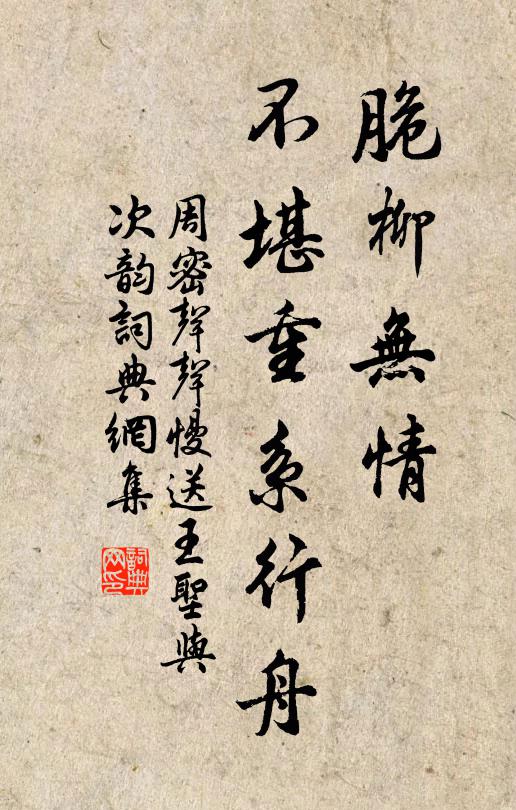 脆柳無情
不堪重系行舟
周密聲聲慢送王聖與
次韵詞典網集
詞典网印